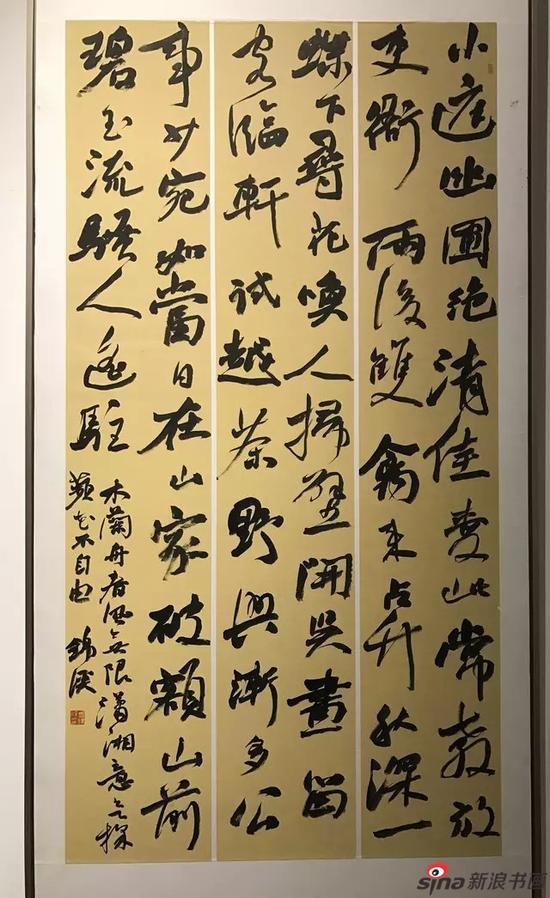 小庭幽圃絕清佳愛此常教放
吏衙雨後雙禽來占竹秋深一
蝶下尋花喚人掃壁開吳畫留
客臨軒試越茶野興漸多公
事少宛如當日在山家破額山前
碧玉流騷人遙駐
木蘭舟春風無限瀟湘意欲採
蘋花不自由 錦
sina 新浪书画